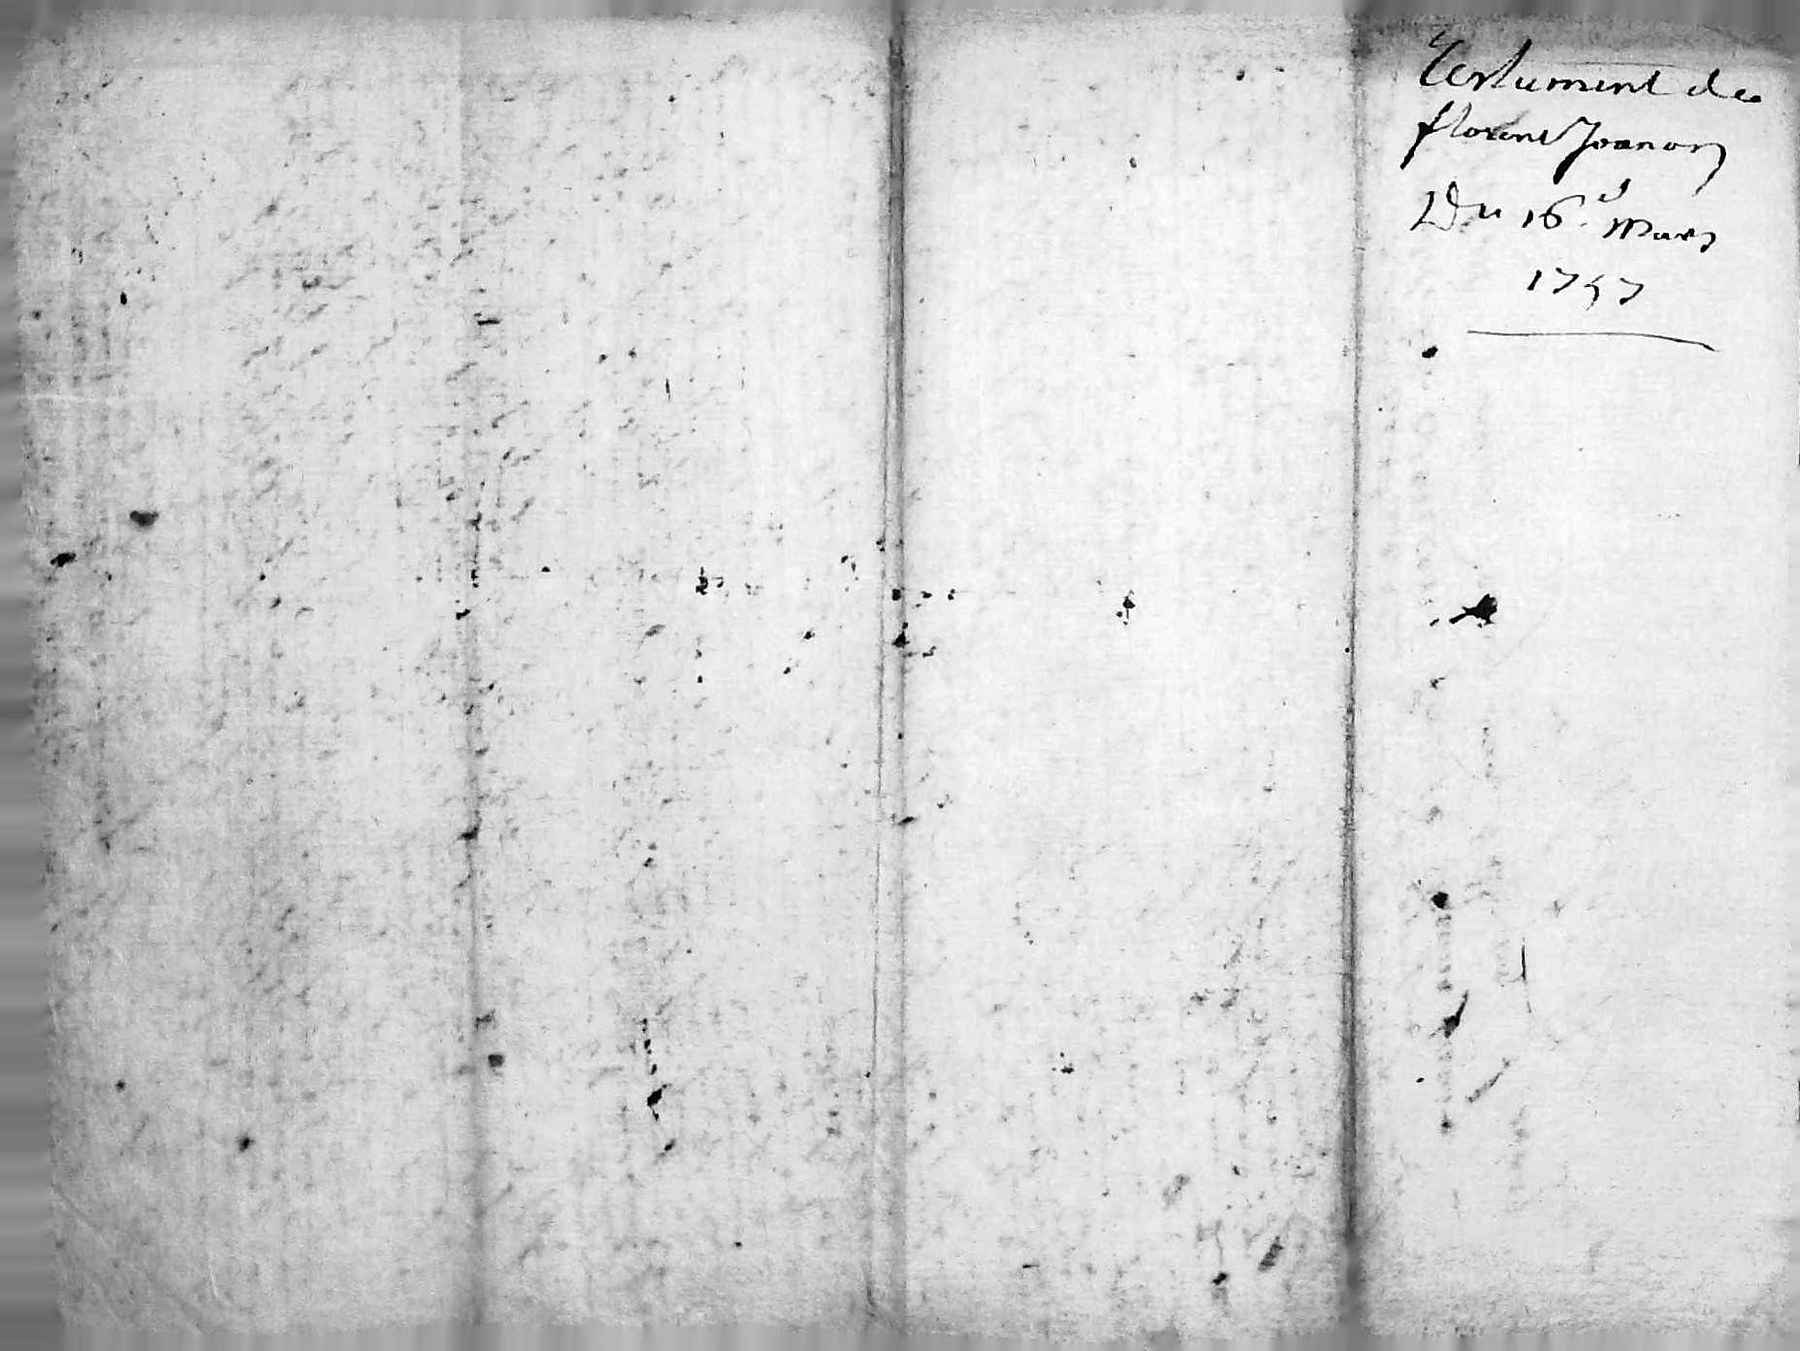 Testament de
florent Joanon
Du 16.e Mars
1757